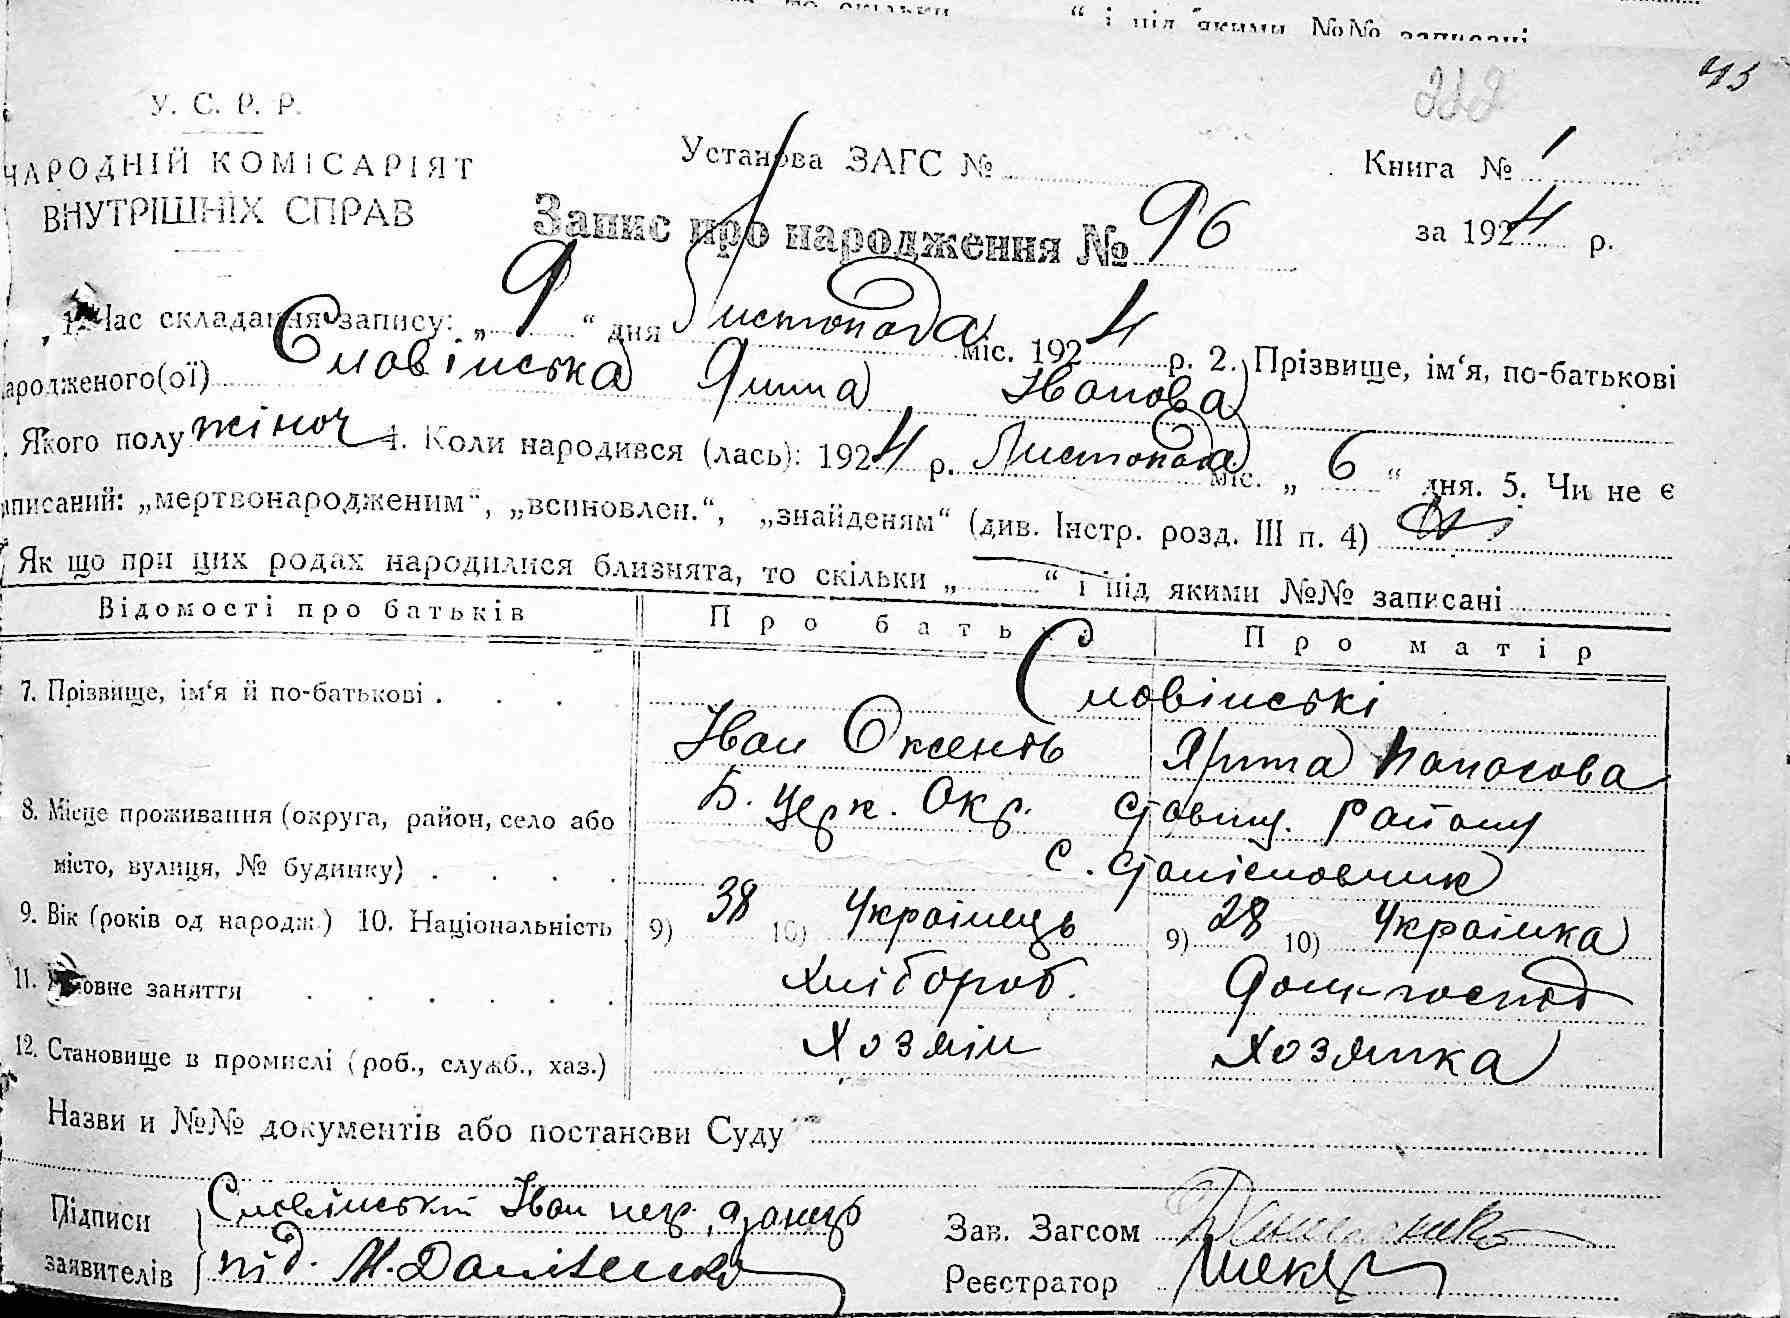 “ і під якими №№ записані
У. С. Р. Р.
НАРОДНІЙ КОМІСАРІЯТ
ВНУТРІШНІХ СПРАВ
Установа ЗАГС №
Книга № 1
Запис про народження № 96
за 1924 р.
1. Час складання запису: „ 9 “ дня Листопада міс. 1924 р. 2. Прізвище, ім‘я, по-батькові
народженого(ої) Словінська Ганна Іванова
Якого полу жіноч 4. Коли народився (лась): 1924 р. Листопада міс. „ 6 “ дня. 5. Чи не є
записаний: „мертвонародженим“, „всиновлен.“, „знайденям“ (див. Інстр. розд. III п. 4)
Як що при цих родах народилися близнята, то скільки „ “ і під якими №№ записані
Відомості про батьків
Про батька
Про матір
7. Прізвище, ім‘я й по-батькові
Словінські
Іван Оксентв
Ярина Панасова
8. Місце проживання (округа, район, село або
Б. Церк. Окр. Ставищ. Району
місто, вулиця, № будинку)
с. Станіславчик
9. Вік (років од народж.) 10. Національність 9) 38 10) Українець 9) 28 10) Українка
11. Головне заняття Хлібороб. Дом-господ
12. Становище в промислі (роб., служб., хаз.) Хозяїн Хозяйка
Назви и №№ документів або постанови Суду
Підписи Словінський Іван
Зав. Загсом
заявителів під. М. Даніленко
Реєстратор